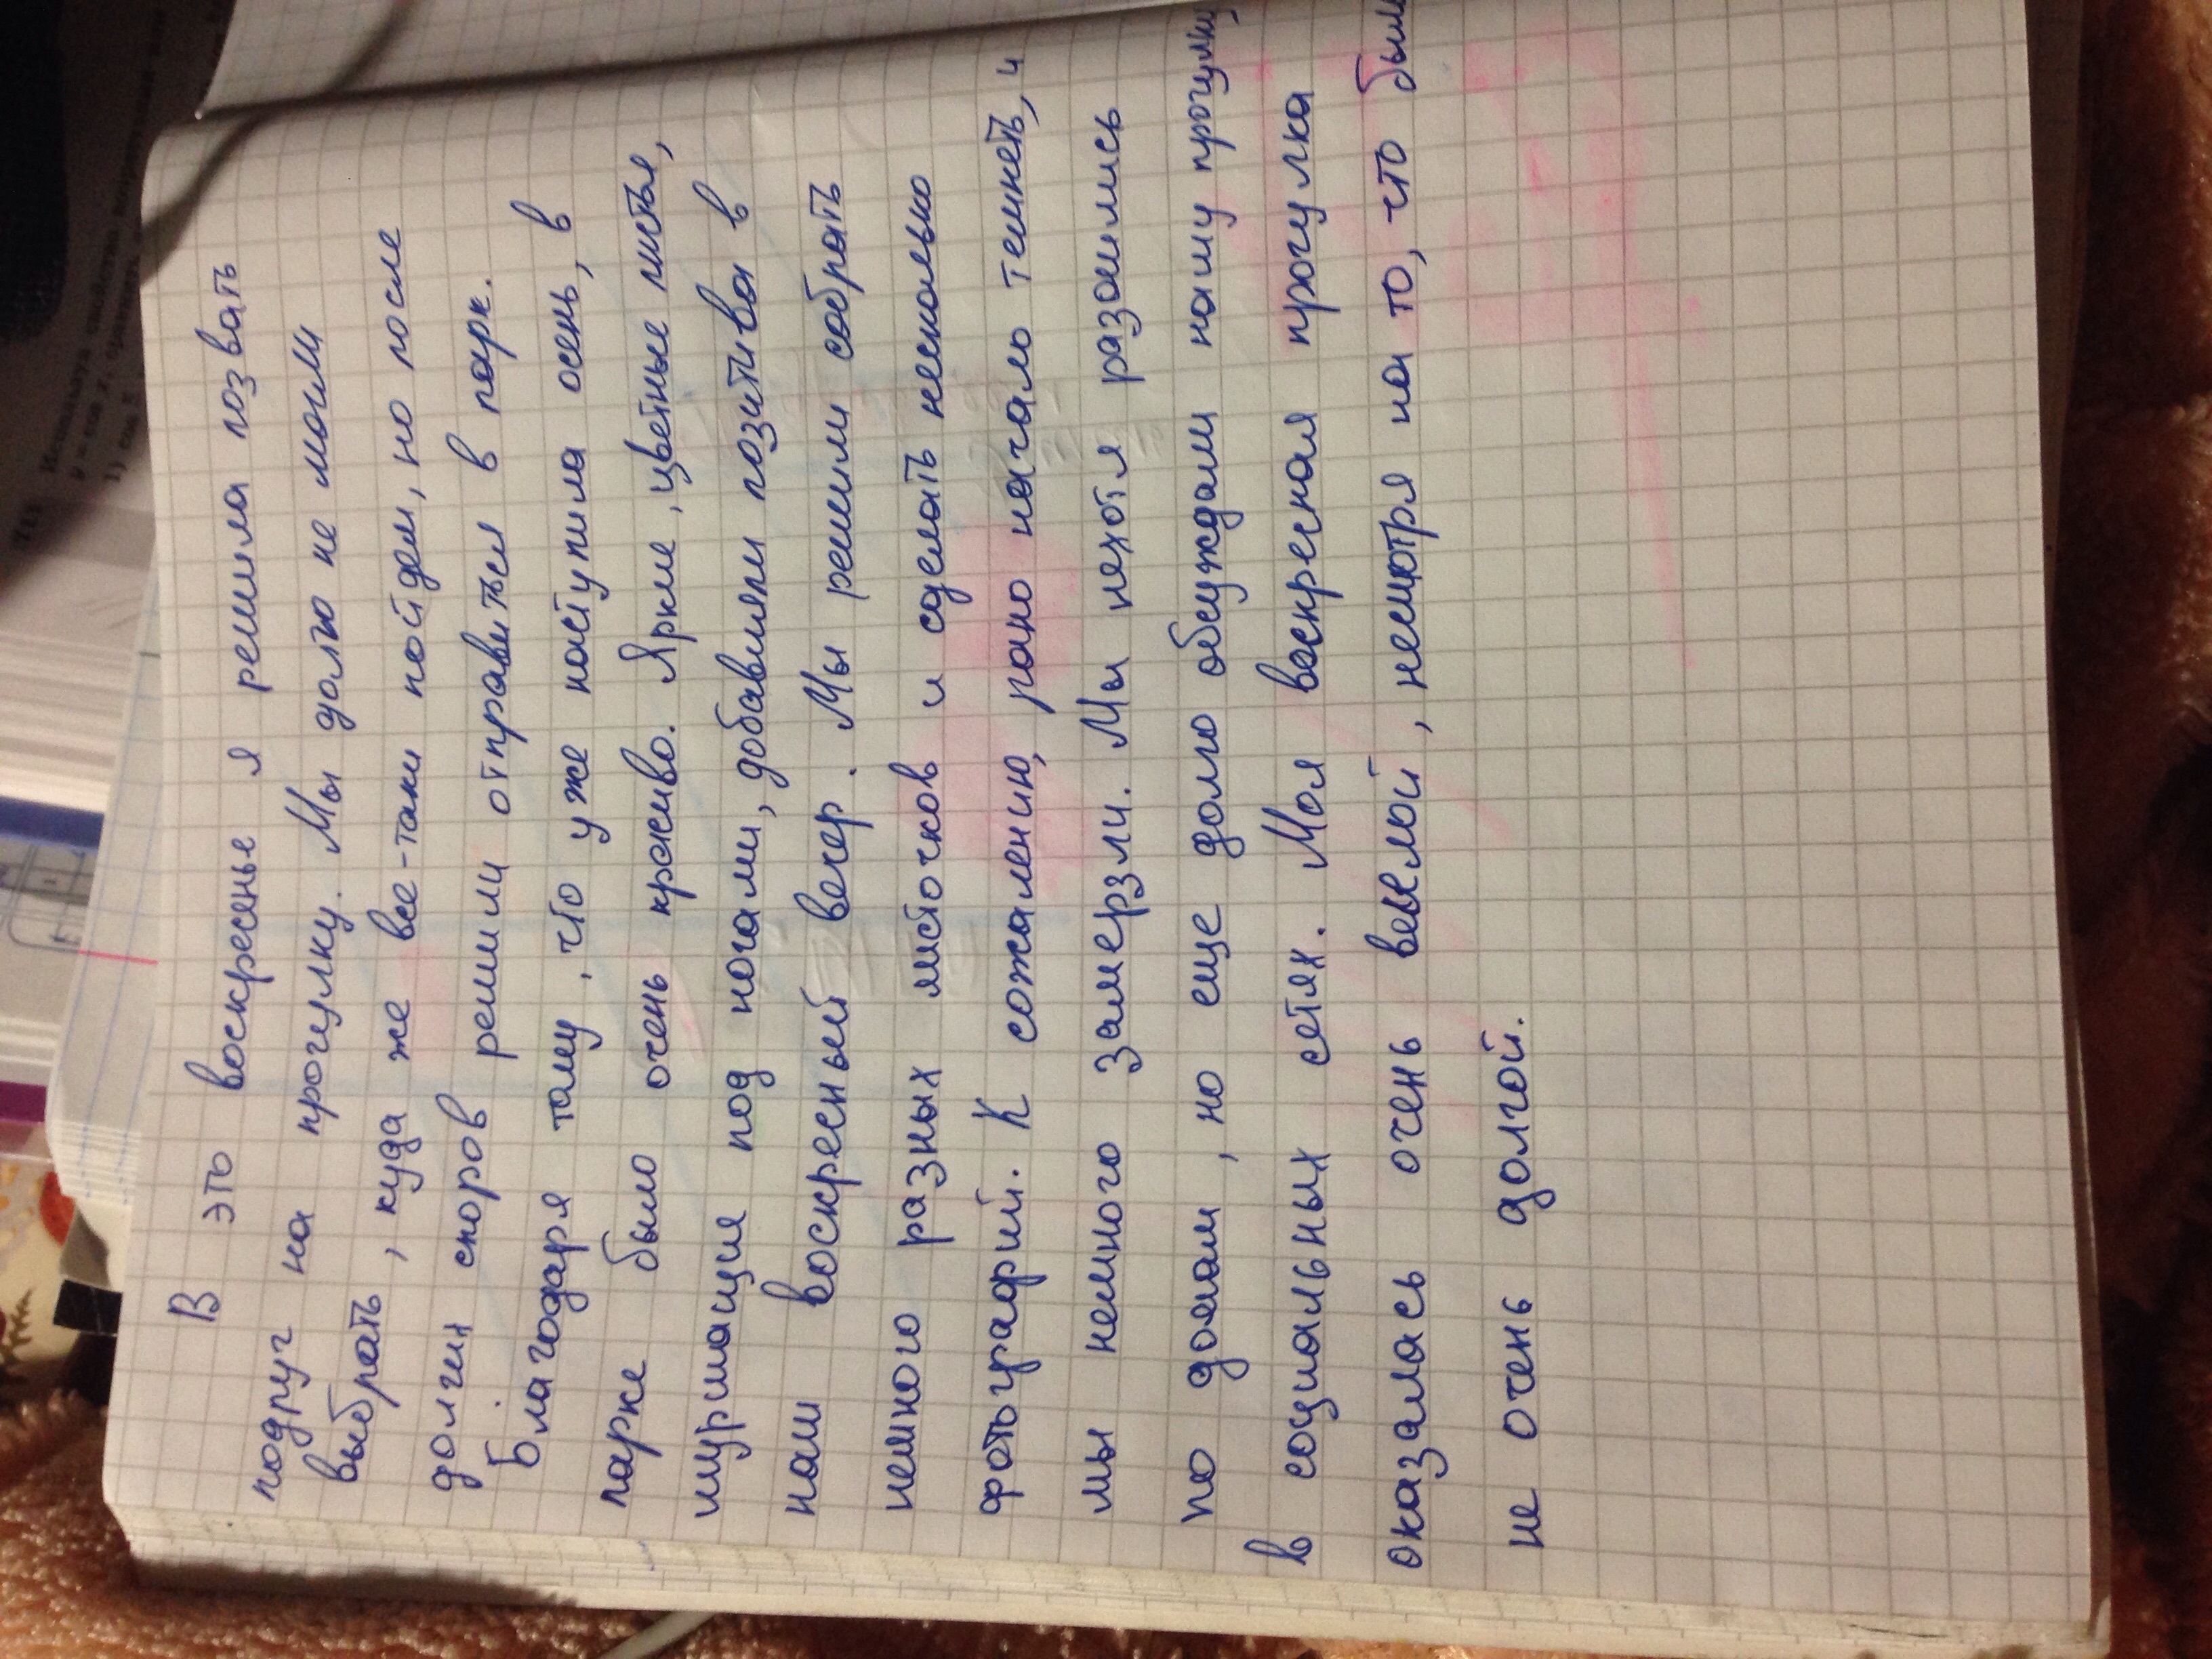 В это воскресенье я решила позвать
подруг на прогулку. Мы долго не могли
выбрать, куда же все-таки пойдем, но после
долгих споров решили отправиться в парк.
Благодаря тому, что уже наступила осень, в
парке было очень красиво. Яркие, цветные листья,
шуршащие под ногами, добавляли позитива в
наш воскресный вечер. Мы решили собрать
немного разных листочков и сделать несколько
фотографий. К сожалению, рано начало темнеть, и
мы немного замерзли. Мы нехотя разошлись
по домам, но еще долго обсуждали нашу прогулку
в социальных сетях. Моя воскресная прогулка
оказалась очень веселой, несмотря на то, что был
не очень долгой.